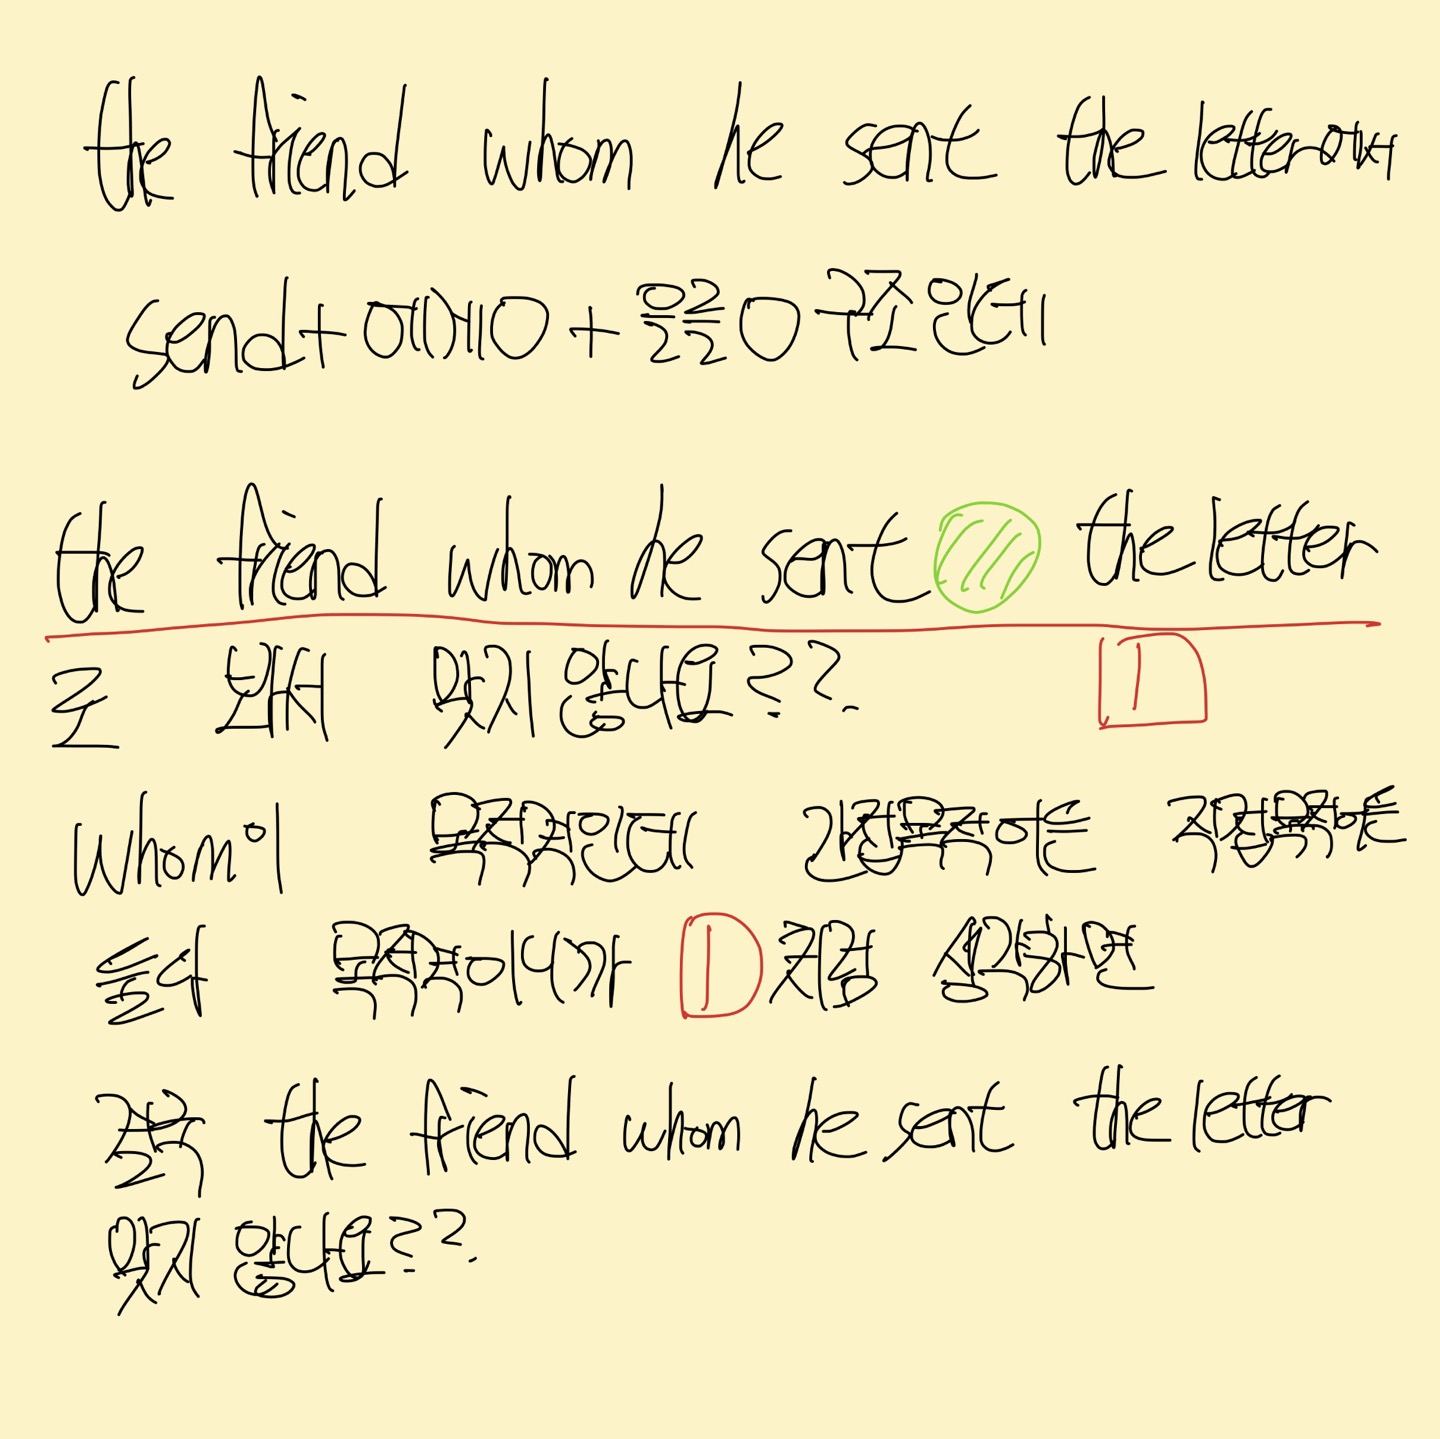 the friend whom he sent the letter에서
send+에게O+을를O 구조인데
the friend whom he sent the letter
로 봐서 맞지 않나요??
1
whom이 목적격인데 간접목적어든 직접목적어든
둘다 목적격이니까 1 처럼 생각하면
결국 the friend whom he sent the letter
맞지 않나요??